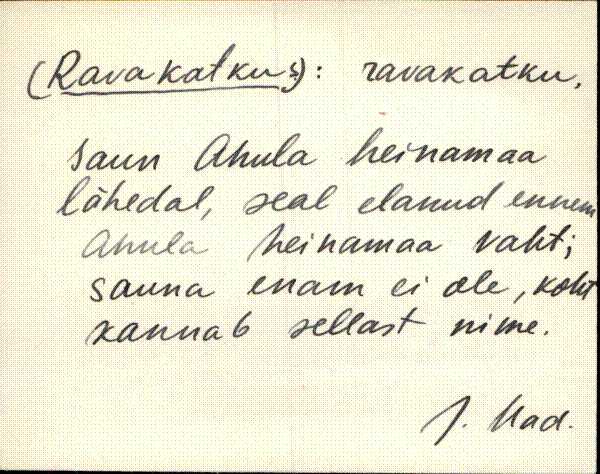 (Ravakatkus): ravakatku,
saun Ahula heinamaa
lähedal, seal elanud ennem
Ahula heinamaa vaht;
sauna enam ei ole, koht
kannab sellast nime.
J. Mad.